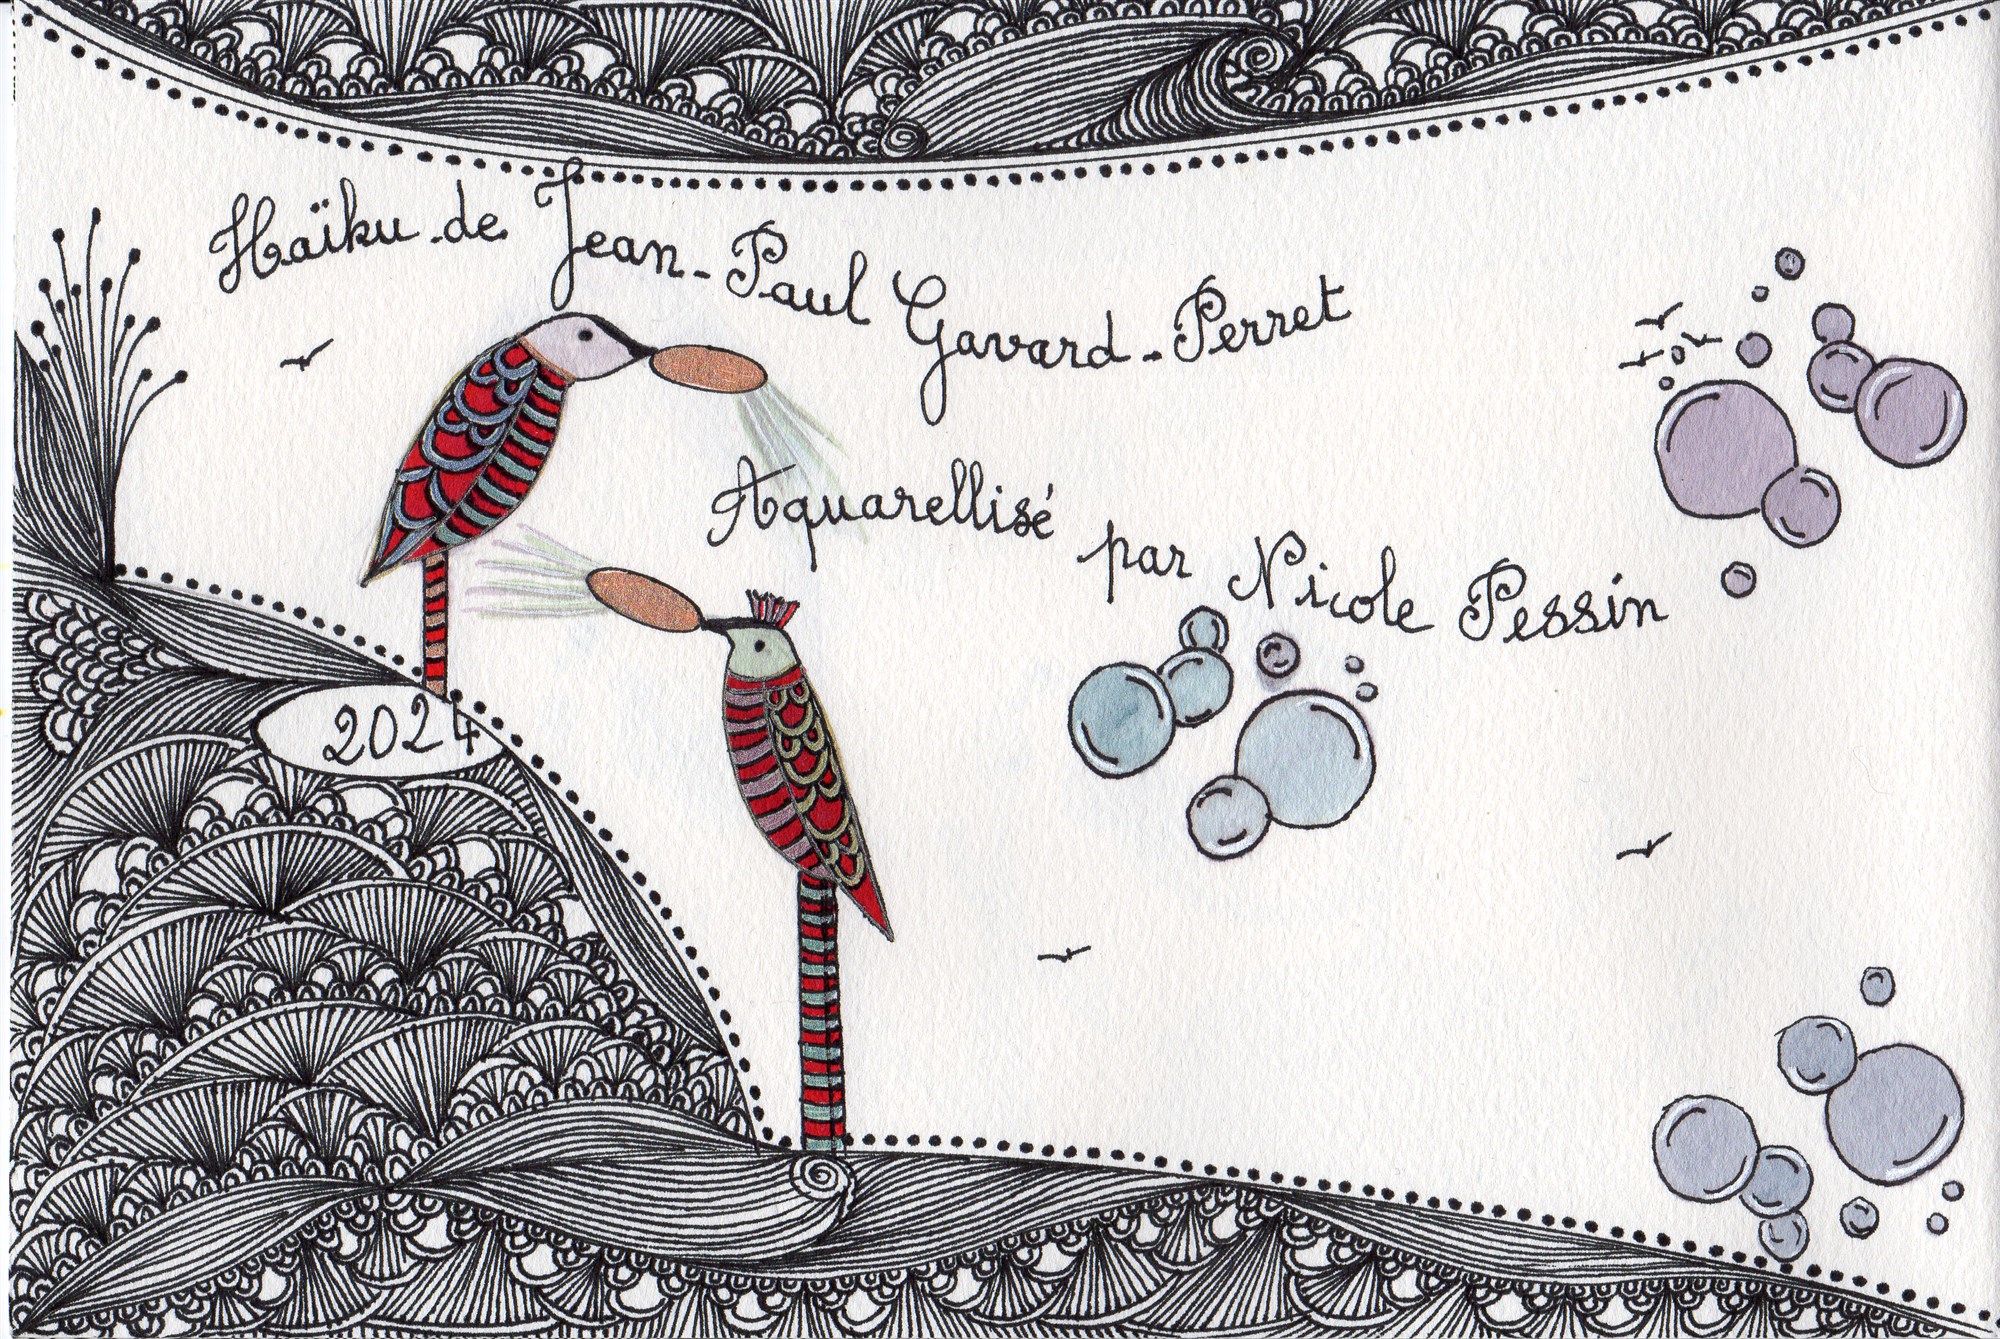 Haïku de Jean-Paul Gavard-Perret
Aquarellisé par Nicole Pessin
2024